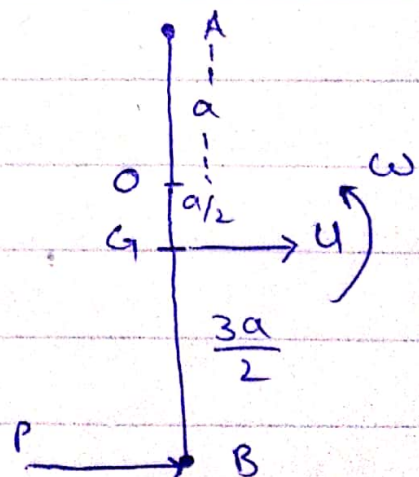 A
a
O
a/2
ω
G
u
3a/2
P
B